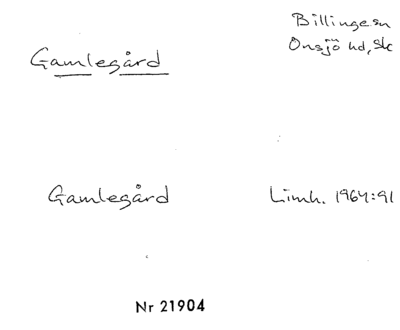 Gamlegård
Billinge sn
Onsjö hd, Sk
Gamlegård
Limh. 1964:91
Nr 21904